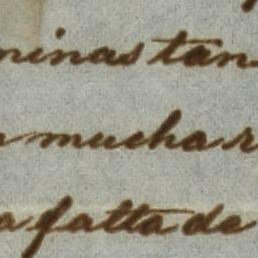 minas tan
mucha r
a falta de